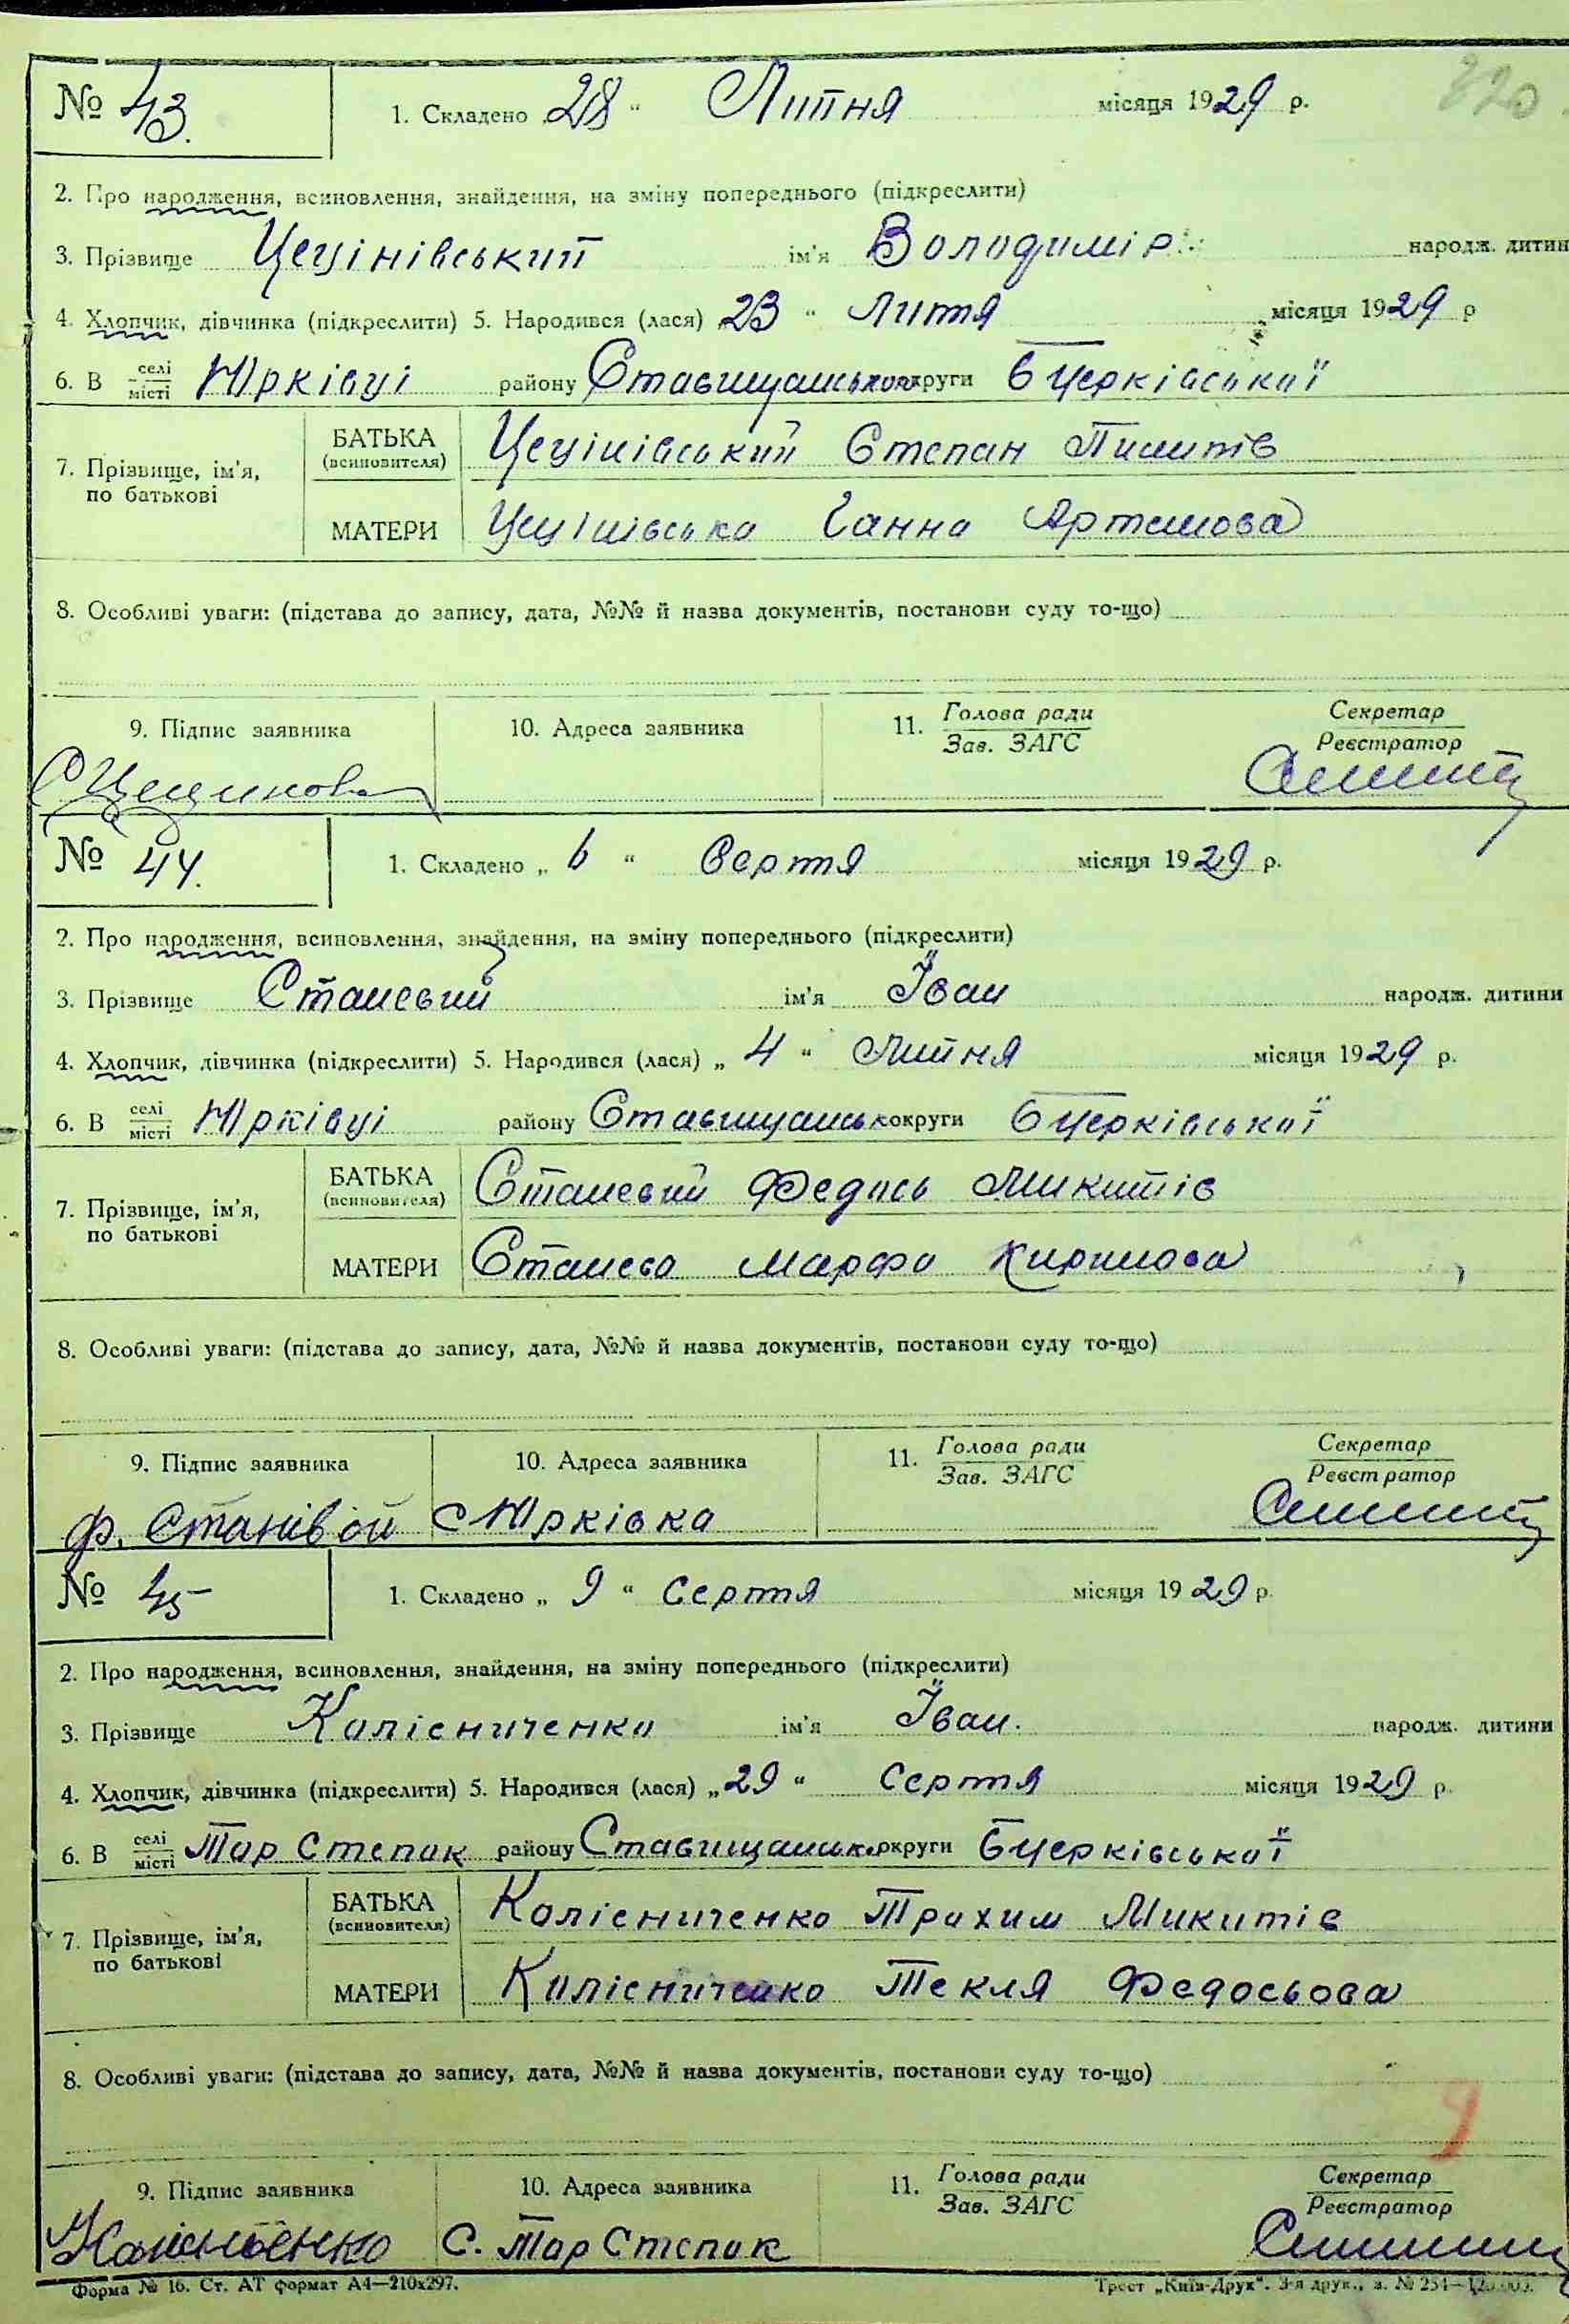 № 43. 1. Складено „28“ Липня місяця 1929 р. 320
2. Про народження, всиновлення, знайдення, на зміну попереднього (підкреслити)
3. Прізвище Цецінівський ім'я Володимір народж. дитин
4. Хлопчик, дівчинка (підкреслити) 5. Народився (лася) „23“ Липя місяця 1929 р
6. В селі/місті Юрківці району Ставищанськ округи Бцерківської
7. Прізвище, ім'я, по батькові
БАТЬКА (всиновителя) Цецінівський Степан Пилипів
МАТЕРИ Цецінівська Ганна Артемова
8. Особливі уваги: (підстава до запису, дата, №№ й назва документів, постанови суду то-що)
9. Підпис заявника 10. Адреса заявника 11. Голова ради/Зав. ЗАГС Секретар/Реєстратор
№ 44. 1. Складено „6“ Серпя місяця 1929 р.
2. Про народження, всиновлення, знайдення, на зміну попереднього (підкреслити)
3. Прізвище Станевий ім'я Їван народж. дитини
4. Хлопчик, дівчинка (підкреслити) 5. Народився (лася) „4“ Липня місяця 1929 р.
6. В селі/місті Юрківці району Ставищанськ округи Бцерківської
7. Прізвище, ім'я, по батькові
БАТЬКА (всиновителя) Станевий Федось Микитів
МАТЕРИ Станева Марфа Кирилова
8. Особливі уваги: (підстава до запису, дата, №№ й назва документів, постанови суду то-що)
9. Підпис заявника 10. Адреса заявника 11. Голова ради/Зав. ЗАГС Секретар/Реєстратор
Ф. Станівой с Юрківка
№ 45 1. Складено „9“ Серпя місяця 1929 р.
2. Про народження, всиновлення, знайдення, на зміну попереднього (підкреслити)
3. Прізвище Калісниченко ім'я Їван. народж. дитини
4. Хлопчик, дівчинка (підкреслити) 5. Народився (лася) „29“ Серпя місяця 1929 р.
6. В селі/місті Тар Степак району Ставищанськ округи Бцерківської
7. Прізвище, ім'я, по батькові
БАТЬКА (всиновителя) Калісниченко Трахим Микитів
МАТЕРИ Калісниченко Текля Федосьова
8. Особливі уваги: (підстава до запису, дата, №№ й назва документів, постанови суду то-що)
9
9. Підпис заявника 10. Адреса заявника 11. Голова ради/Зав. ЗАГС Секретар/Реєстратор
С. Тар Степак
Форма № 16. Ст. АТ формат А4—210х297. Трест „Київ-Друк“. 3-я друк., з. № 254—